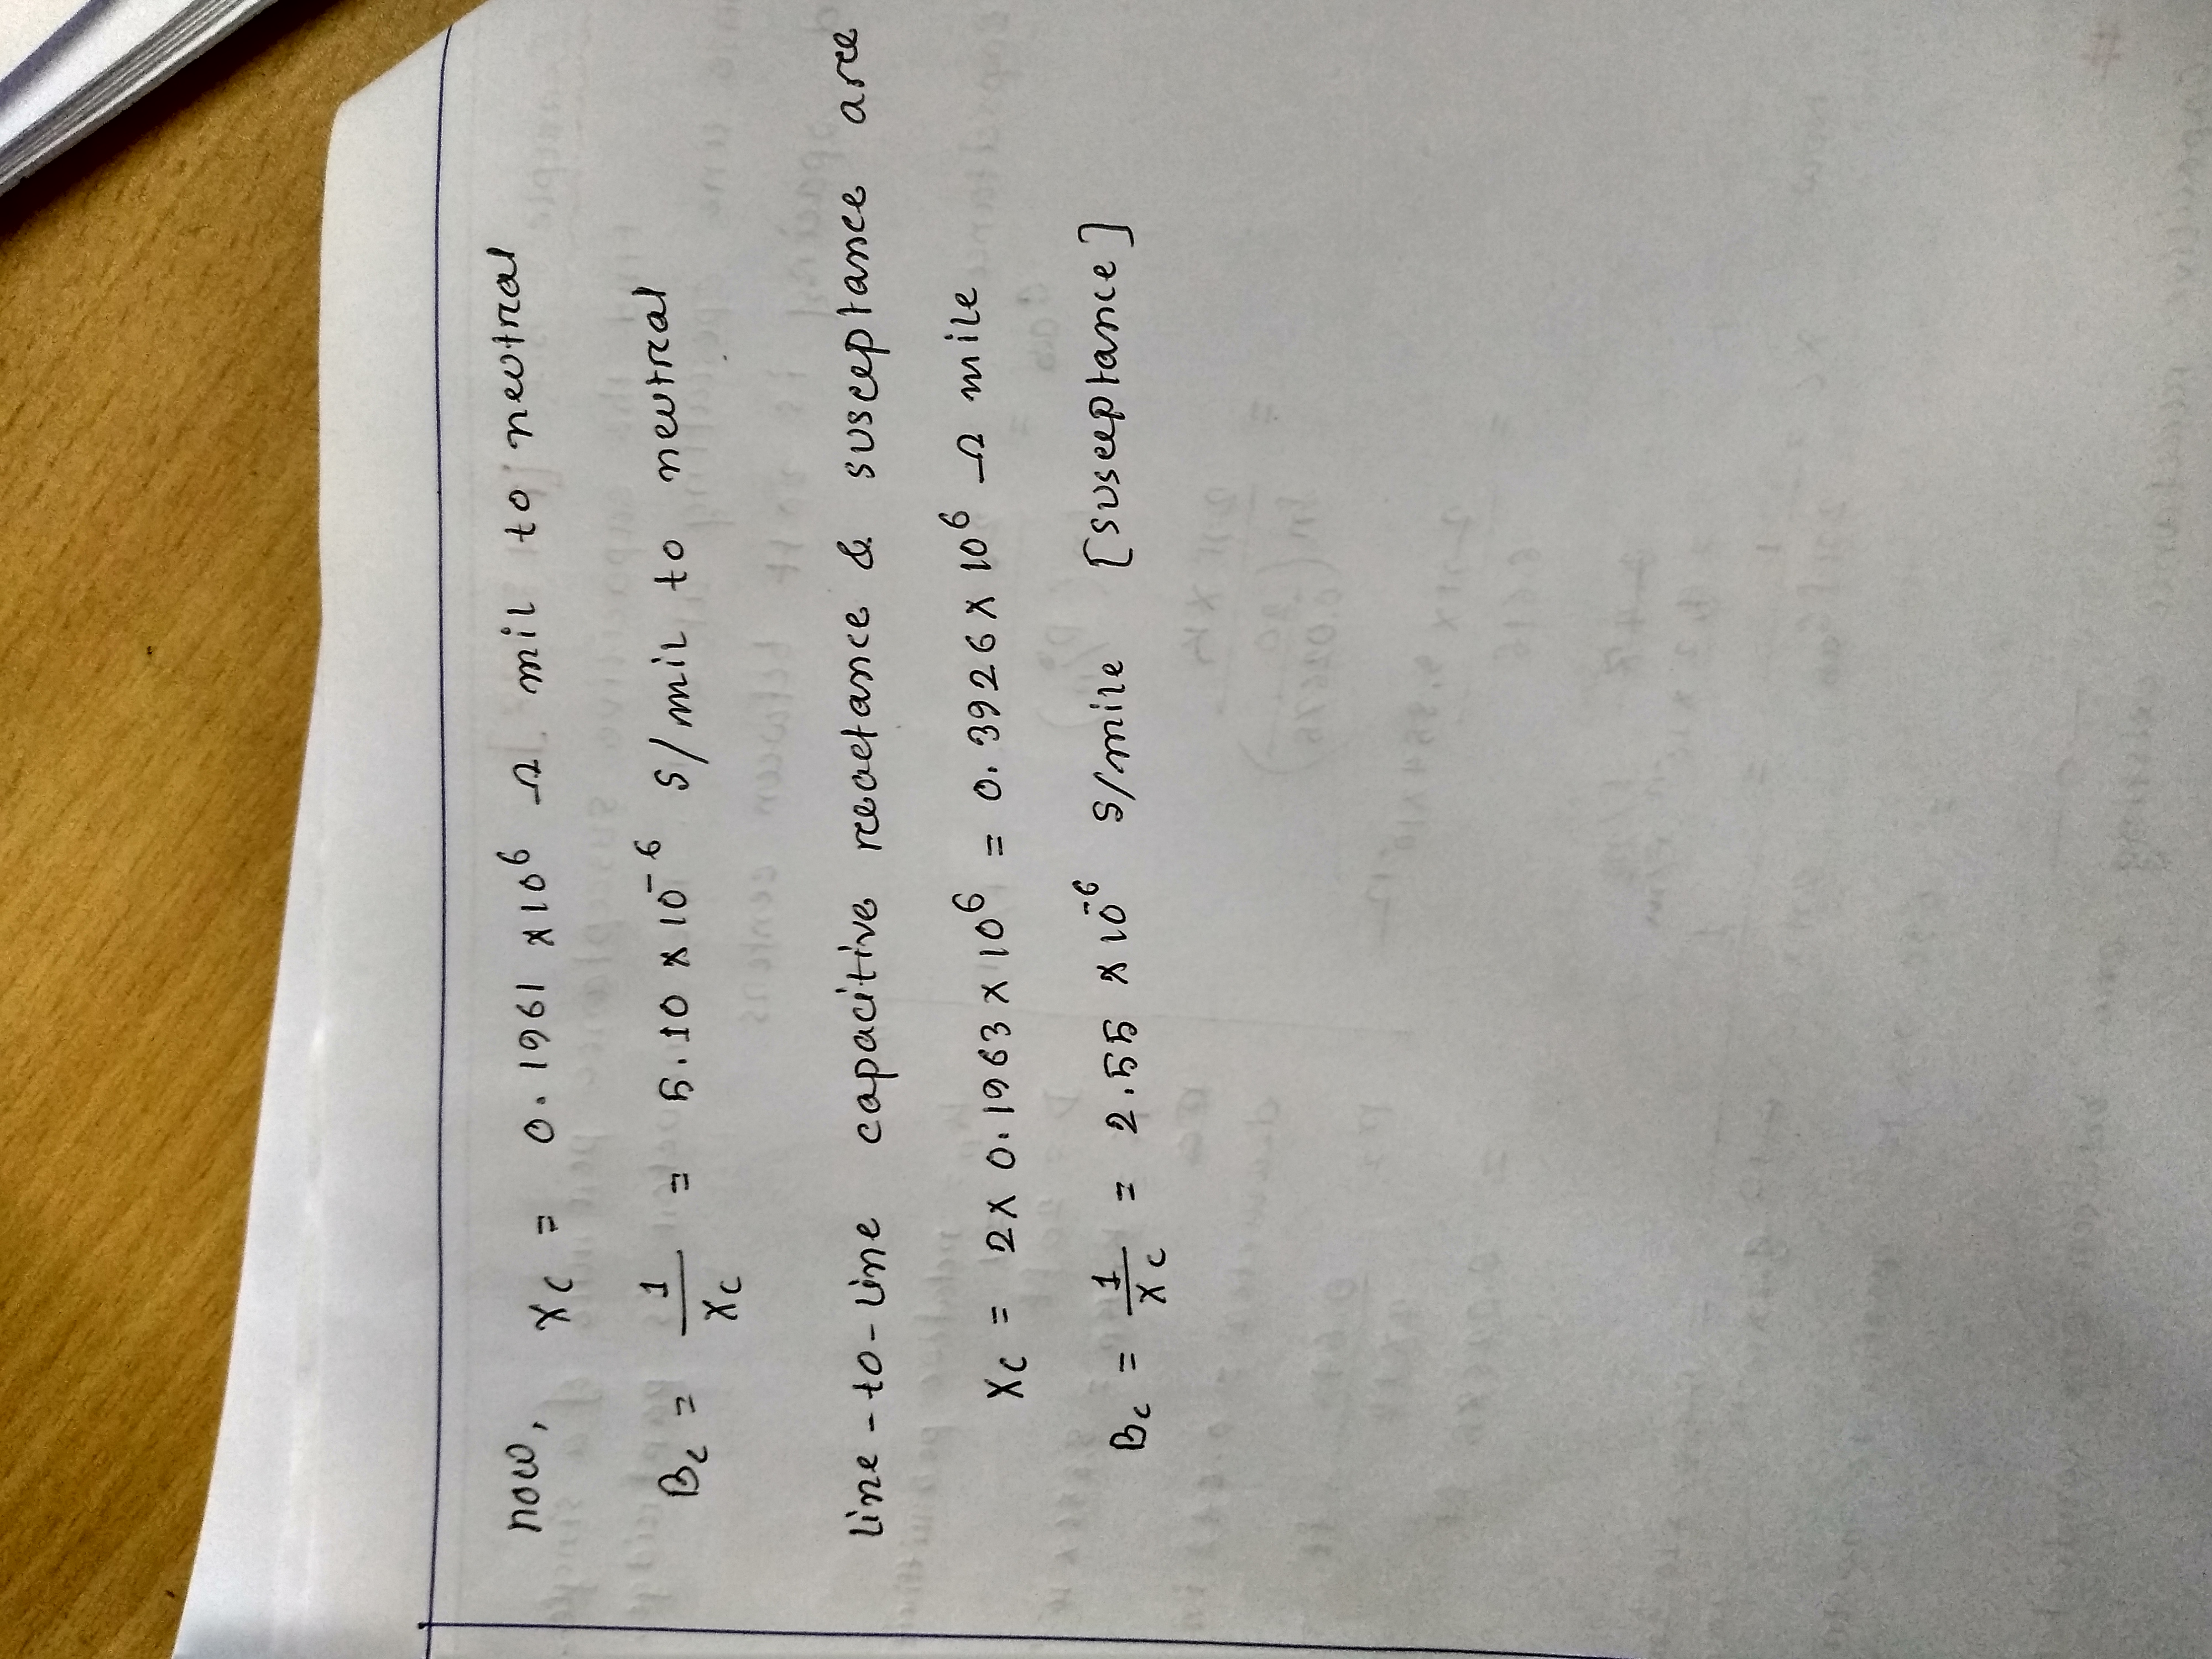 now, Xc = 0.1961 × 10⁶ Ω mil to neutral
Bc = 1/Xc = 5.10 × 10⁻⁶ S/mil to neutral
Line-to-Line capacitive reactance & susceptance are
Xc = 2 × 0.1963 × 10⁶ = 0.3926 × 10⁶ Ω mile
Bc = 1/Xc = 2.55 × 10⁻⁶ S/mile [susceptance]